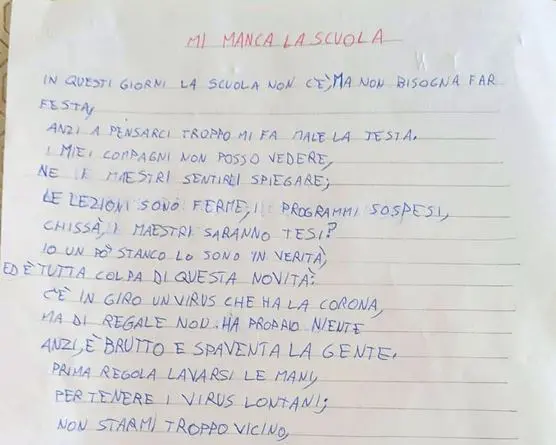 MI MANCA LA SCUOLA
IN QUESTI GIORNI LA SCUOLA NON C'È, MA NON BISOGNA FAR
FESTA,
ANZI A PENSARCI TROPPO MI FA MALE LA TESTA.
I MIEI COMPAGNI NON POSSO VEDERE,
NE I MAESTRI SENTIRLI SPIEGARE;
LE LEZIONI SONO FERME, I PROGRAMMI SOSPESI,
CHISSÀ, I MAESTRI SARANNO TESI?
IO UN PO' STANCO LO SONO IN VERITÀ,
ED È TUTTA COLPA DI QUESTA NOVITÀ:
C'È IN GIRO UN VIRUS CHE HA LA CORONA,
MA DI REGALE NON HA PROPRIO NIENTE
ANZI, È BRUTTO E SPAVENTA LA GENTE.
PRIMA REGOLA LAVARSI LE MANI,
PER TENERE I VIRUS LONTANI;
NON STARMI TROPPO VICINO,